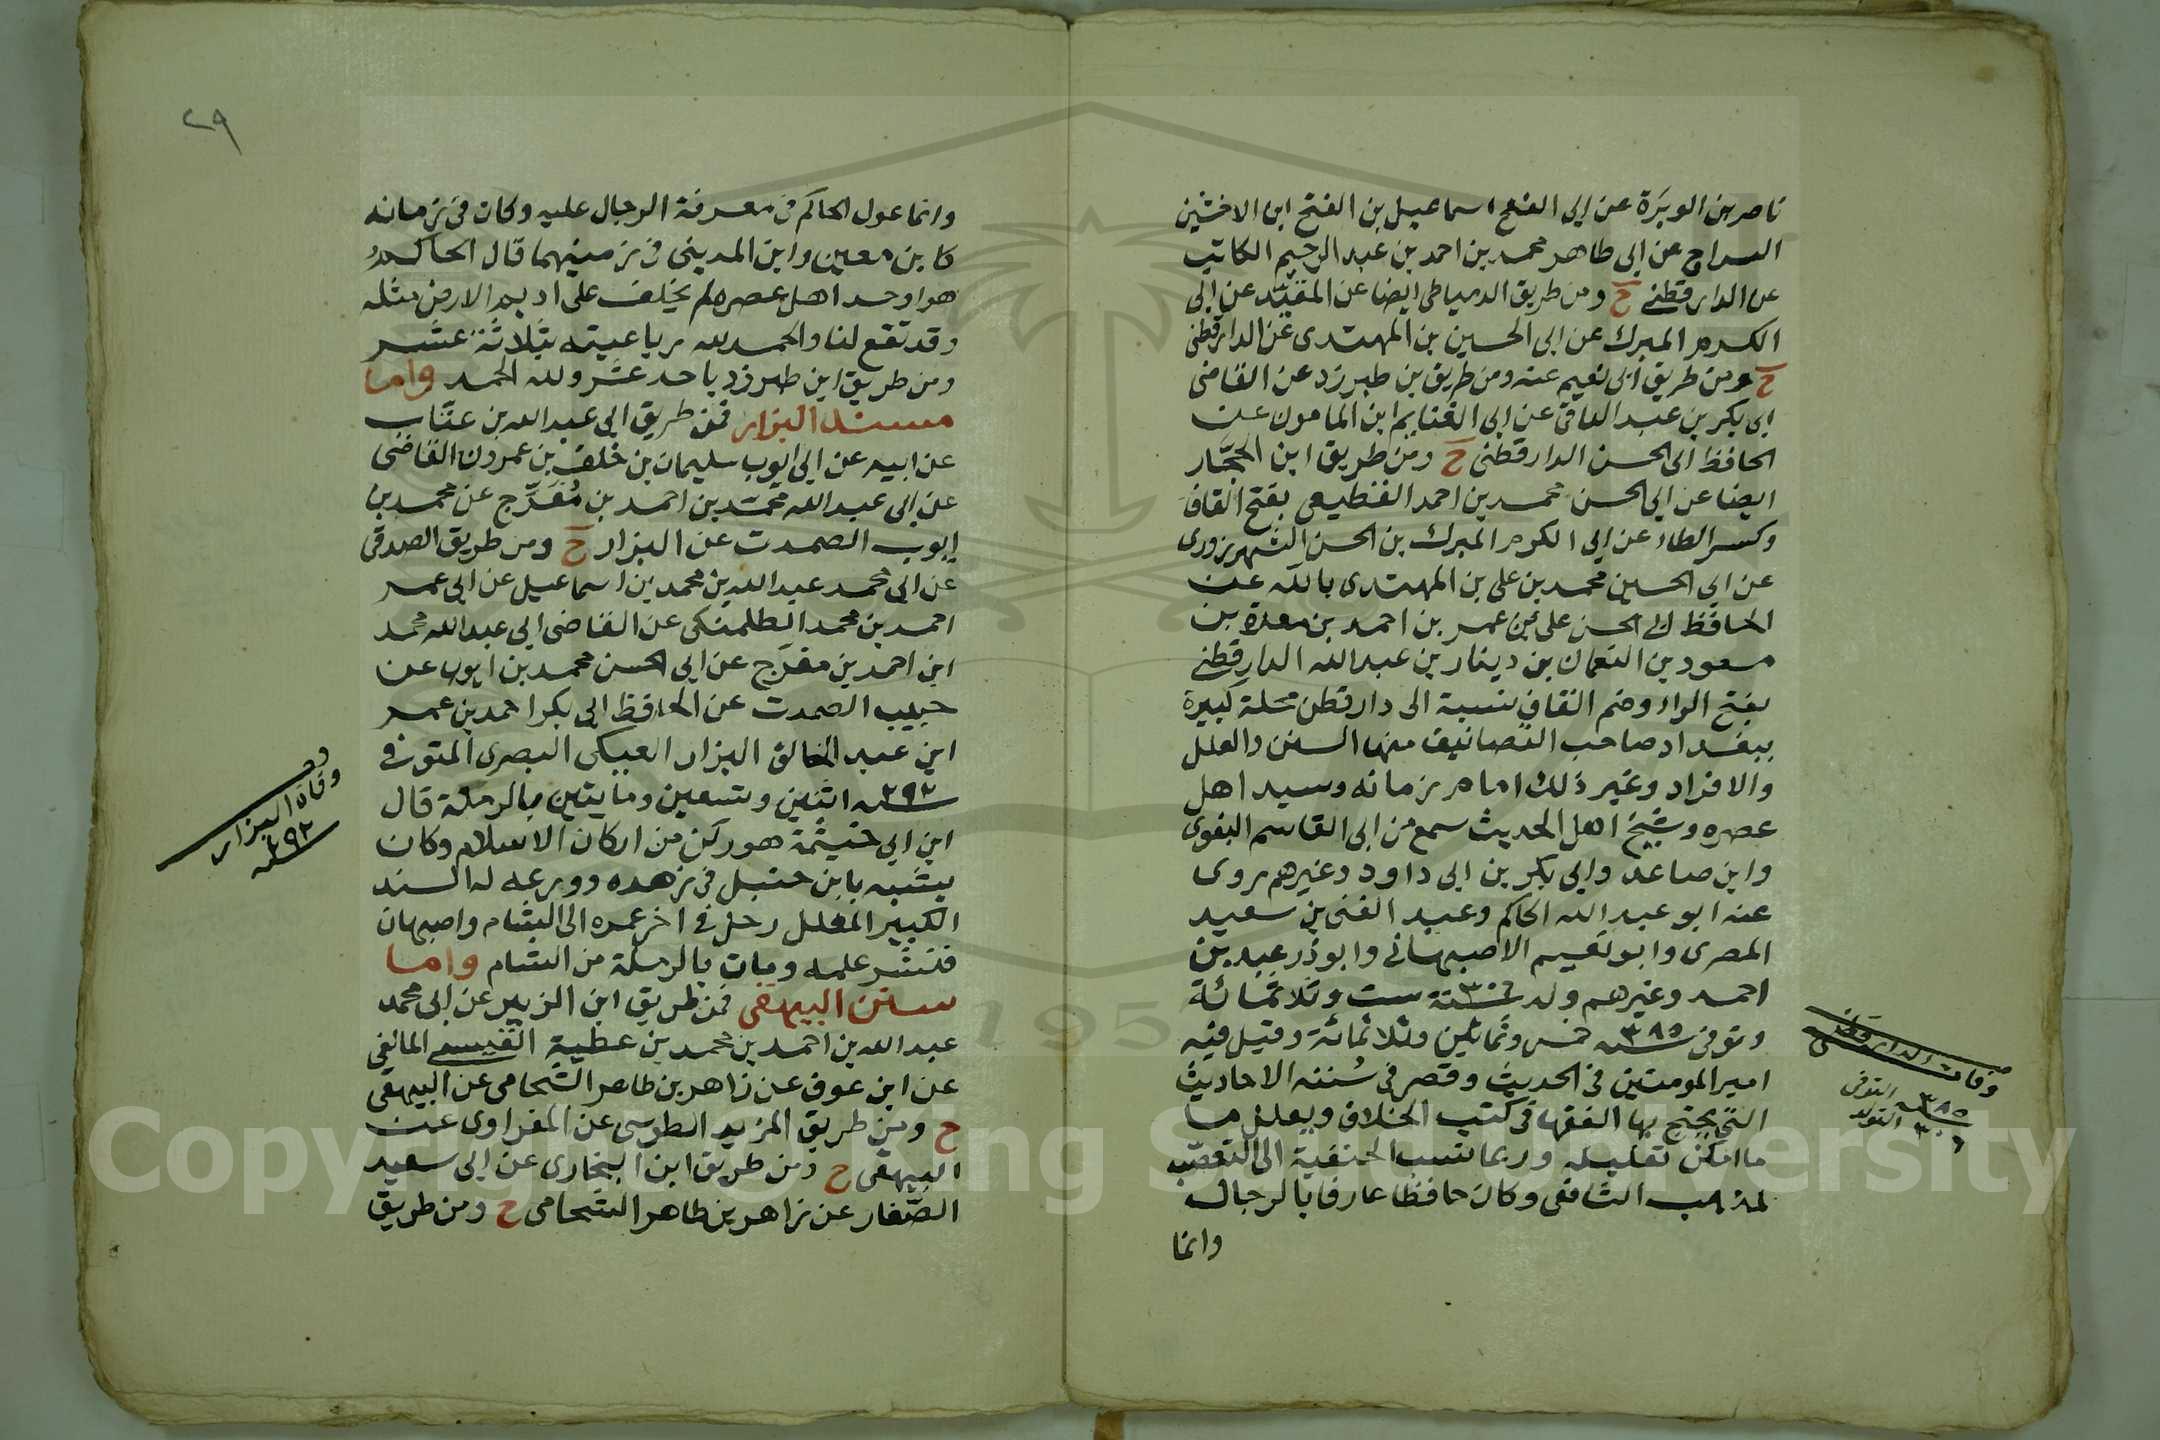 ناصر بن الوبرة عن ابى الفتح اسماعيل بن الفتح ابن الاخشين
السراج عن ابى طاهر محمد بن احمد بن عبد الرحيم الكاتب
عن الدارقطنى ح ومن طريق الدمياطى ايضا عن المقير عن ابى
الكرم المبرك عن ابى الحسين بن المهتدى عن الدارقطنى
ح ومن طريق أبى نعيم عنه ومن طريق بن طبرزد عن القاضى
ابى بكر بن عبد الباقى عن ابى الغنايم ابن المامون عن
الحافظ ابى الحسن الدارقطنى ح ومن طريق ابن الحجار
ايضا عن ابى الحسن محمد بن احمد القطيعى بفتح القاف
وكسر الطاء عن ابى الكرم المبرك بن الحسن الشهرزورى
عن ابى الحسين محمد بن على بن المهتدى بالله عن
الحافظ ابى الحسن على بن عمر بن احمد بن معدة بن
مسعود بن النعمان بن دينار بن عبد الله الدارقطنى
بفتح الراء وضم القاف نسبة الى دارقطن محلة كبيرة
ببغداد صاحب التصانيف منها السنن والعلل
والافراد وغير ذلك امام زمانه وسيد اهل
عصره وشيخ اهل الحديث سمع من ابى القاسم البغوى
وابن صاعد وابى بكر بن ابى داود وغيرهم روى
عنه ابو عبد الله الحاكم وعبد الغنى بن سعيد
المصرى وابو نعيم الاصبهانى وابو ذر عبد بن
احمد وغيرهم ولد سنة ٣٠٦ ست وثلاثمائة
وتوفى سنه ٣٨٥ خمس وثمانين وثلاثمائة وقيل فيه
امير المومنين فى الحديث وقصر فى سُننه الاحاديث
التى يحتج بها الفقها فى كتب الخلاف ويعلل ما
ما امكن تعليله وربما نسب الحنفية الى التعصب
لمذهب الشافعى وكان حافظا عارفا بالرجال
وانما
وفات الدارقطنى
سنه ٣٨٥ التوفى
التولد
٢٩
وانما عول الحاكم فى معرفة الرجال عليه وكان فى زمانه
كابن معين وابن المدينى فى زمنيهما قال الحاكم
هو اوحد اهل عصره لم يخلف على اديم الارض مثله
وقد تقع لنا والحمد لله رباعيته بثلاثة عشر
ومن طريق ابن طبرزد باحد عشر ولله الحمد واما
مسند البزار فمن طريق ابى عبد الله بن عتاب
عن ابيه عن ابى ايوب سليمان بن خلف بن عمرون القاضى
عن ابى عبد الله محمد بن احمد بن مُفَرّج عن محمد بن
ايوب الصمدت عن البزار ح ومن طريق الصدفى
عن ابى محمد عبد الله بن محمد بن اسماعيل عن ابى عمر
احمد بن محمد الطلمنكى عن القاضى ابى عبد الله محمد
ابن احمد بن مفرّج عن ابى الحسن محمد بن ايوب عن
حبيب الصمدت عن الحافظ ابى بكر احمد بن عمر
ابن عبد الخالق البزار العبيكى البصرى المتوفى
سنه ٢٩٢ اثنين وتسعين ومايتين بالرملة قال
ابن ابى خيثمة هو ركن من اركان الاسلام وكان
يشبه بابن حنبل فى زهده وورعه له السند
الكبير المعلل رحل فى اخر عمره الى الشام واصبهان
فنشر علمه ومات بالرملة من الشام واما
سنن البيهقى فمن طريق ابن الزبير عن ابى محمد
عبد الله بن احمد بن محمد بن عطية القيسى المالقى
عن ابن عوف عن زاهر بن طاهر الشحامى عن البيهقى
ح ومن طريق المزيد الطوسى عن الفراوى عن
البيهقى ح ومن طريق ابن البخارى عن ابى سعيد
الصّفار عن زاهر بن طاهر الشحامى ح ومن طريق
وفاة البزار
سنه ٢٩٢
Copyright © King Saud University
195